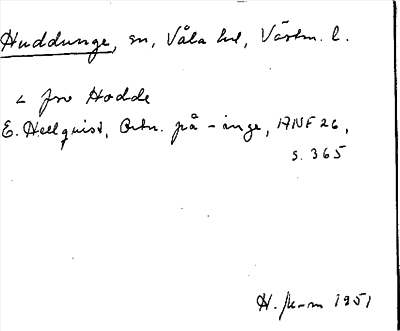 Huddunge, sn, Våla hd, Västm. l.
< fno Hodde
E. Hellquist, Ortn. på -inge, ANF 26,
s. 365
H. 1951